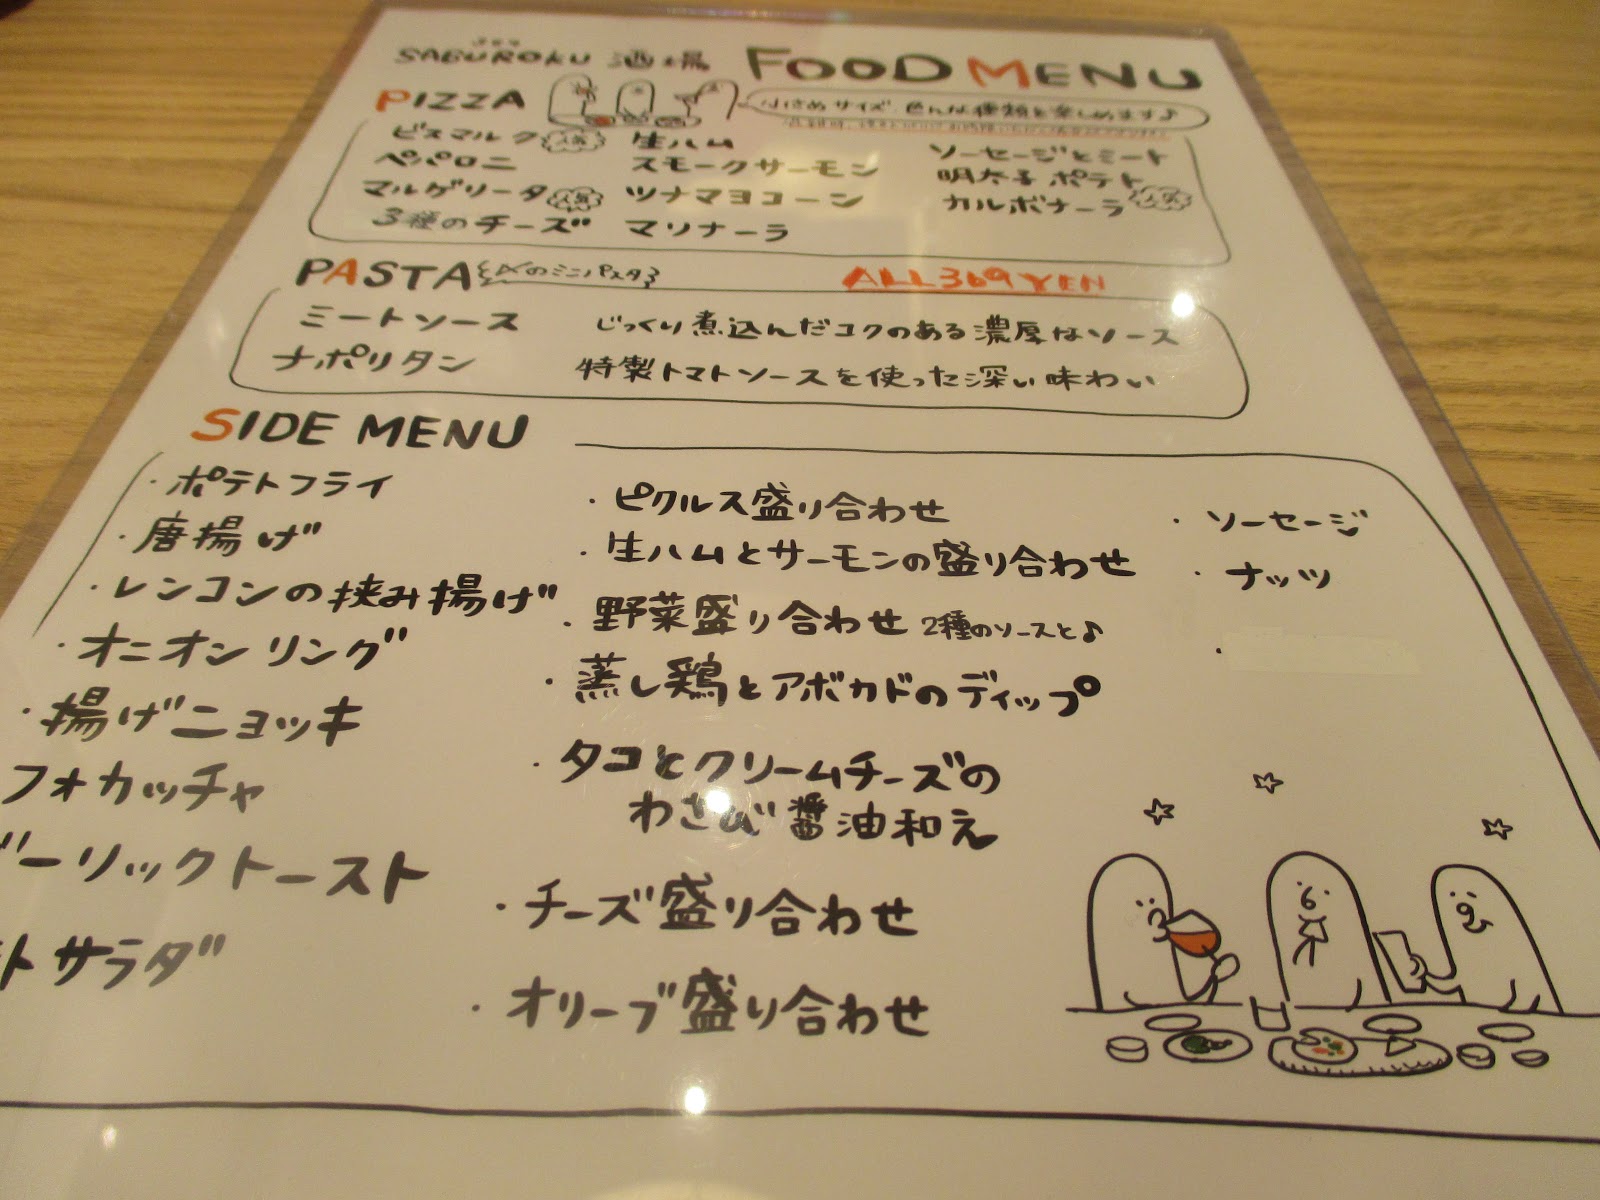 SABUROKU 酒場 FOOD MENU
PIZZA
小さめサイズ、色んな種類を楽しめます♪
ビスマルク 人気 生ハム ソーセージとミート
ペパロニ スモークサーモン 明太子ポテト
マルゲリータ 人気 ツナマヨコーン カルボナーラ 人気
3種のチーズ マリナーラ
PASTA 〆のミニパスタ ALL 369 YEN
ミートソース じっくり煮込んだコクのある濃厚なソース
ナポリタン 特製トマトソースを使った深い味わい
SIDE MENU
・ポテトフライ
・唐揚げ
・レンコンの挟み揚げ
・オニオンリング
・揚げニョッキ
フォカッチャ
ーリックトースト
トサラダ
・ピクルス盛り合わせ
・生ハムとサーモンの盛り合わせ
・野菜盛り合わせ 2種のソースと♪
・蒸し鶏とアボカドのディップ
・タコとクリームチーズの
わさび醤油和え
・チーズ盛り合わせ
・オリーブ盛り合わせ
・ソーセージ
・ナッツ